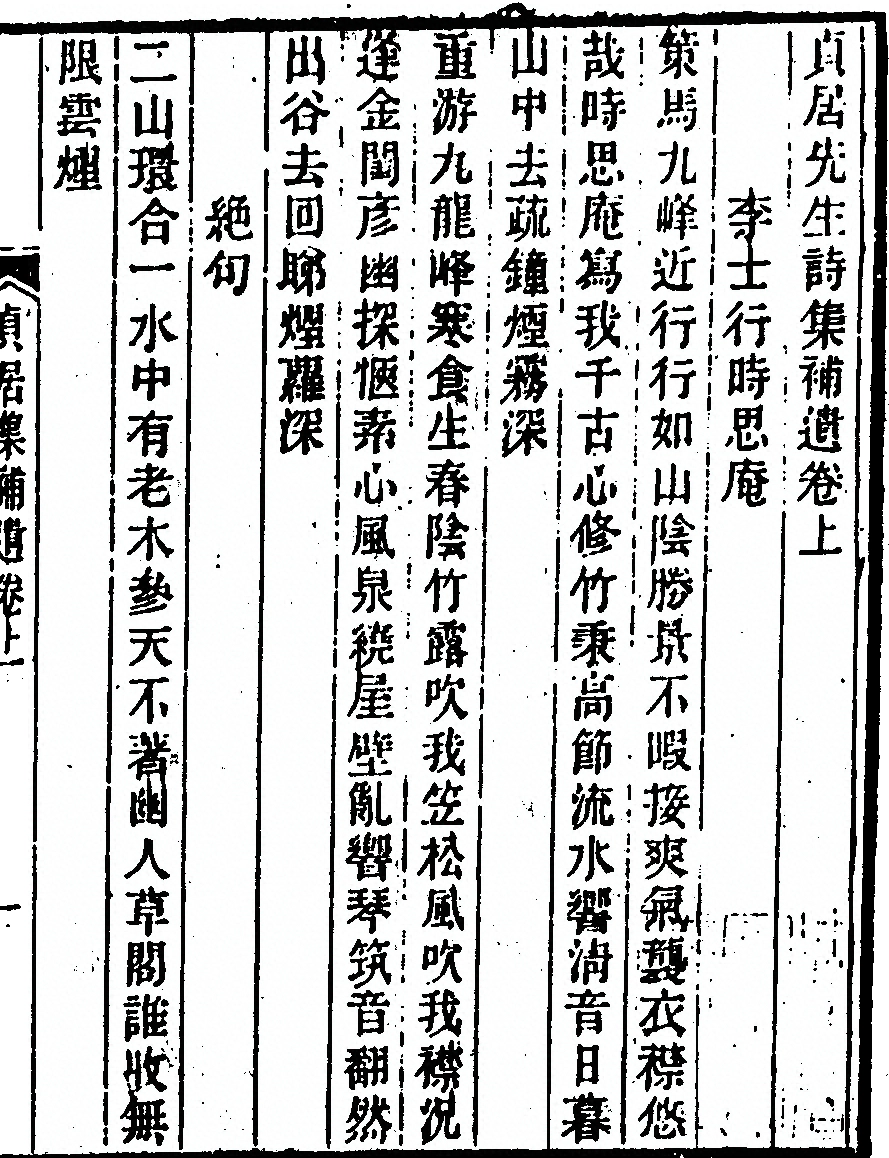 貞居先生詩集補遺卷上
李士行時思庵
策馬九峰近行行如山陰勝景不暇接爽氣襲衣襟悠
哉時思庵寫我千古心修竹秉高節流水響清音日暮
山中去疏鐘煙霧深
重游九龍峰寒食生春陰竹露吹我笠松風吹我襟況
逢金閨彥幽探愜素心風泉繞屋壁亂響琴筑音翻然
出谷去回睇煙蘿深
絕句
二山環合一水中有老木參天不著幽人草閣誰收無
限雲煙
貞居集補遺卷上 一